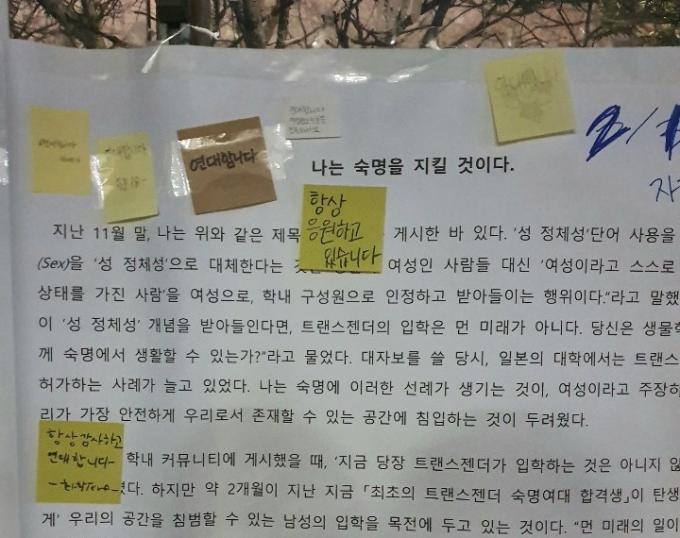 연대합니다
연대합니다
연대합니다
연대합니다
나는 숙명을 지킬 것이다.
항상
응원하고
있습니다
지난 11월 말, 나는 위와 같은 제목 게시한 바 있다. '성 정체성'단어 사용을
(Sex)을 '성 정체성'으로 대체한다는 여성인 사람들 대신 '여성이라고 스스로
상태를 가진 사람'을 여성으로, 학내 구성원으로 인정하고 받아들이는 행위이다."라고 말했
이 '성 정체성' 개념을 받아들인다면, 트랜스젠더의 입학은 먼 미래가 아니다. 당신은 생물학
께 숙명에서 생활할 수 있는가?"라고 물었다. 대자보를 쓸 당시, 일본의 대학에서는 트랜스
허가하는 사례가 늘고 있었다. 나는 숙명에 이러한 선례가 생기는 것이, 여성이라고 주장하
리가 가장 안전하게 우리로서 존재할 수 있는 공간에 침입하는 것이 두려웠다.
항상 감사하고
연대합니다-
학내 커뮤니티에 게시했을 때, '지금 당장 트랜스젠더가 입학하는 것은 아니지 않
였다. 하지만 약 2개월이 지난 지금 「최초의 트랜스젠더 숙명여대 합격생」이 탄생
게' 우리의 공간을 침범할 수 있는 남성의 입학을 목전에 두고 있는 것이다. "먼 미래의 일이